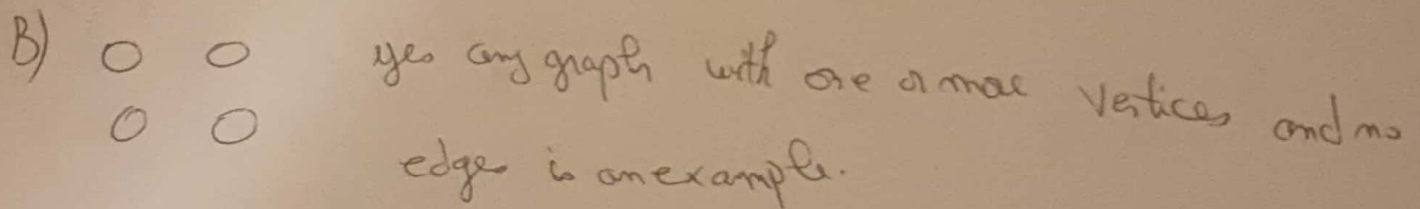 B) yes any graph with one or more vertices and no
edge is an example.